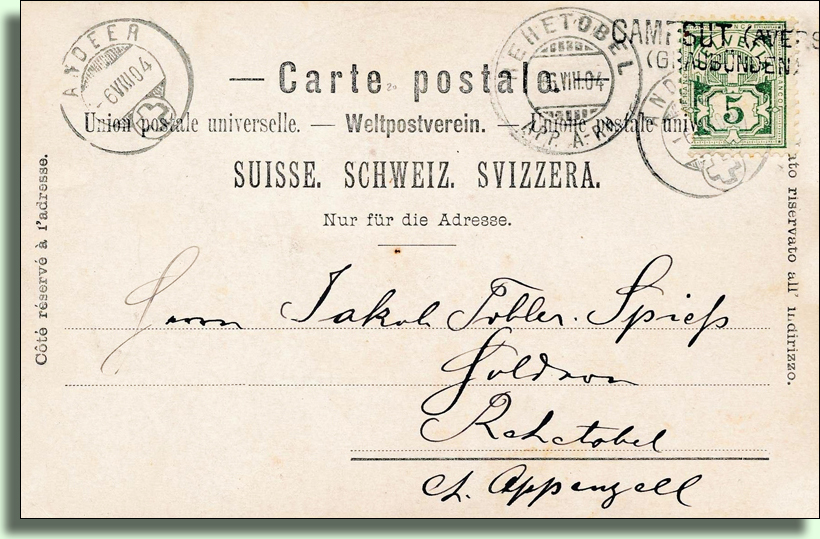 ANDEER
-6 VIII 04
REHETOBEL
6. VIII. 04
CAMPSUT (AVERS
(GRAUBÜNDEN)
5
— Carte postale. —
Union postale universelle. — Weltpostverein. — Unione postale univ
SUISSE. SCHWEIZ. SVIZZERA.
Nur für die Adresse.
Côté réservé à l'adresse.
ato riservato all' indirizzo.
Herrn Jakob Tobler-Spieß
Rehetobel
Ct. Appenzell